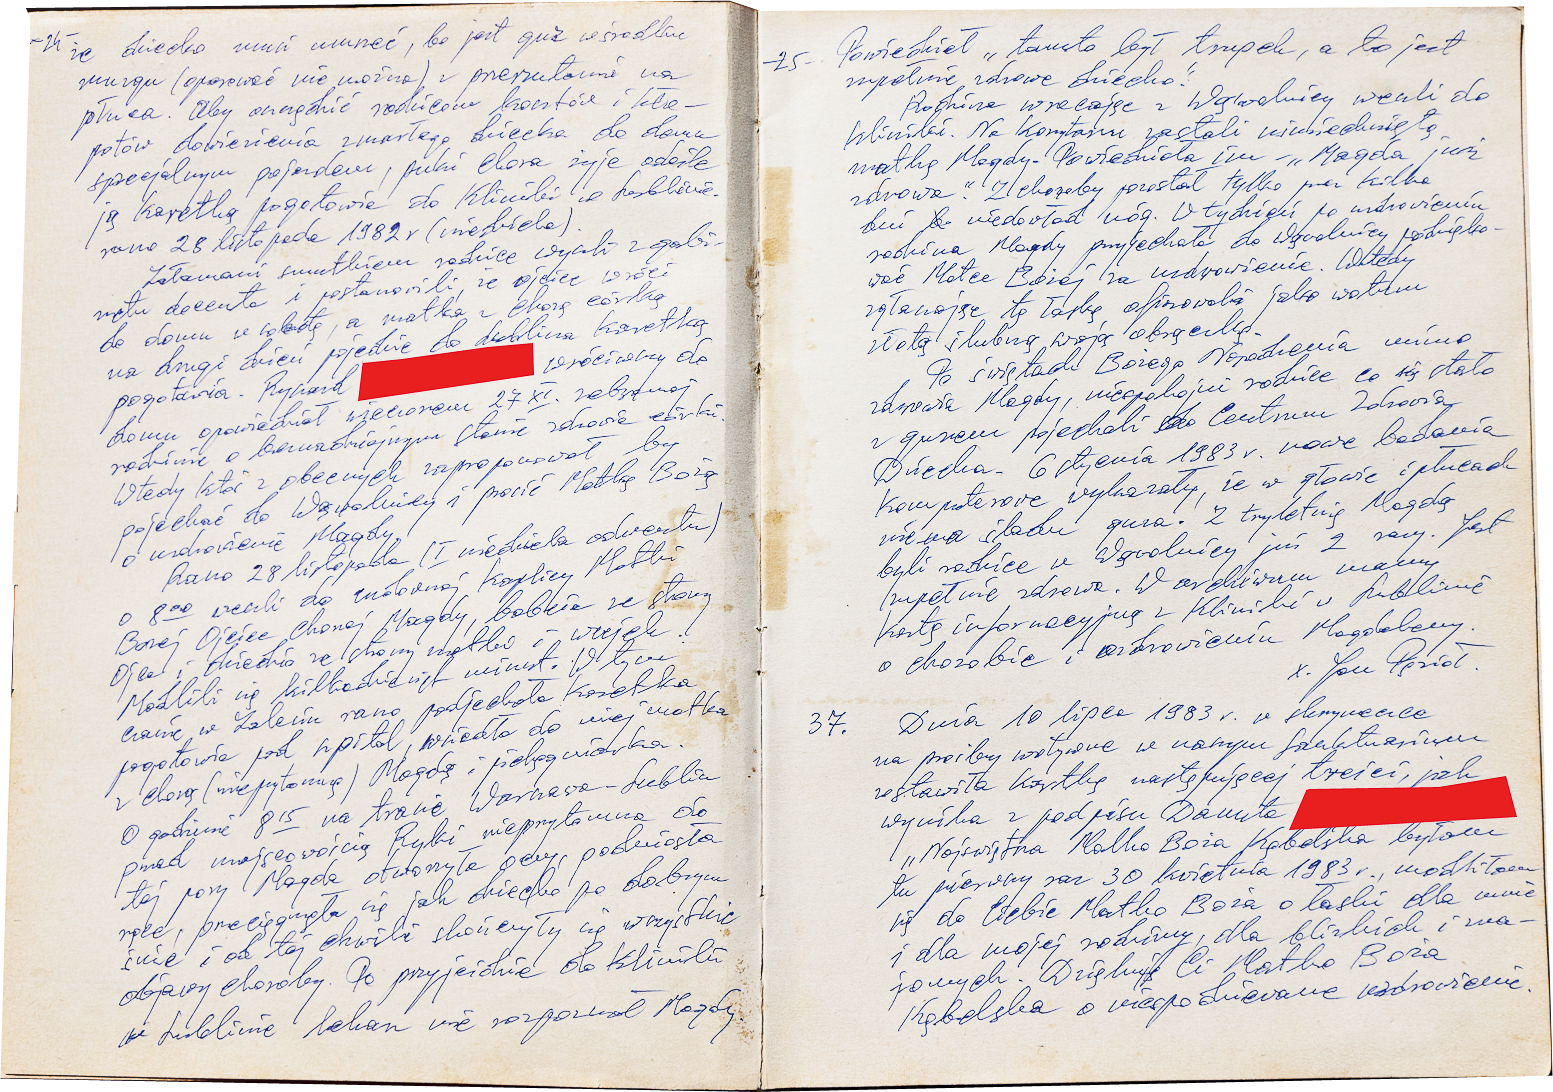 -24-
że dziecko musi umrzeć, bo jest guz w środku
mózgu (operować nie można) z przerzutami na
płuca. Aby oszczędzić rodzicom kosztów i kło-
potów dowiezienia zmarłego dziecka do domu
specjalnym pojazdem, póki chora żyje odeśle
ją karetką pogotowia do Kliniki w Lublinie.
rano 28 listopada 1982 r (niedziela).
Załamani smutkiem rodzice wyszli z gabi-
netu docenta i postanowili, że ojciec wróci
do domu w sobotę, a matka z chorą córką
na drugi dzień pojedzie do Lublina karetką
pogotowia. Ryszard wróciwszy do
domu opowiedział wieczorem 27 XI. zebranej
rodzinie o beznadziejnym stanie zdrowia córki.
Wtedy ktoś z obecnych zaproponował by
pojechać do Wąwolnicy i prosić Matkę Bożą
o uzdrowienie Magdy.
Rano 28 listopada (I niedziela adwentu)
o 8⁰⁰ weszli do cudownej Kaplicy Matki
Bożej Ojciec chorej Magdy, babcia ze strony
Ojca i dziadzia ze strony matki i wujek.
Modlili się kilkadziesiąt minut. W tym
czasie w Zalesiu rano podjechała karetka
pogotowia pod szpital, wsiadła do niej matka
z chorą (nieprzytomną) Magdą i pielęgniarka.
O godzinie 8¹⁵ na trasie Warszawa-Lublin
przed miejscowością Ryki nieprzytomna do
tej pory Magda otworzyła oczy, podniosła
ręce, przeciągnęła się jak dziecko po dobrym
śnie i od tej chwili skończyły się wszystkie
objawy choroby. Po przyjeździe do Kliniki
w Lublinie lekarz nie rozpoznał Magdy.
-25-
Powiedział „tamto był trupek, a to jest
zupełnie zdrowe dziecko".
Rodzina wracając z Wąwolnicy weszli do
kliniki. Na korytarzu zastali uśmiechniętą
matkę Magdy. Powiedziała im - „Magda już
zdrowa." Z choroby pozostał tylko przez kilka
dni niedowład nóg. W tydzień po uzdrowieniu
rodzina Magdy przyjechała do Wąwolnicy podzięko-
wać Matce Bożej za uzdrowienie. Wtedy
zgłaszając tę łaskę ofiarowali jako wotum
złotą ślubną swoją obrączkę.
Po świętach Bożego Narodzenia mimo
zdrowia Magdy, niespokojni rodzice co się stało
z guzem pojechali do Centrum Zdrowia
Dziecka. 6 stycznia 1983 r. nowe badania
komputerowe wykazały, że w głowie i płucach
nie ma śladu guza. Z trzyletnią Magdą
byli rodzice w Wąwolnicy już 2 razy. Jest
zupełnie zdrowa. W archiwum mamy
kartę informacyjną z Kliniki w Lublinie
o chorobie i uzdrowieniu Magdaleny.
x. Jan Pęzioł.
37. Dnia 10 lipca 1983 r. w skrzyneczce
na prośby wotywne w naszym Sanktuarium
zostawiła kartkę następującej treści, jak
wynika z podpisu Danuta
„Najświętsza Matko Boża Kębelska byłam
tu pierwszy raz 30 kwietnia 1983 r., modliłam
się do Ciebie Matko Boża o łaski dla mnie
i dla mojej rodziny, dla bliskich i zna-
jomych. Dziękuję Ci Matko Boża
Kębelska o niespodziewane uzdrowienie.